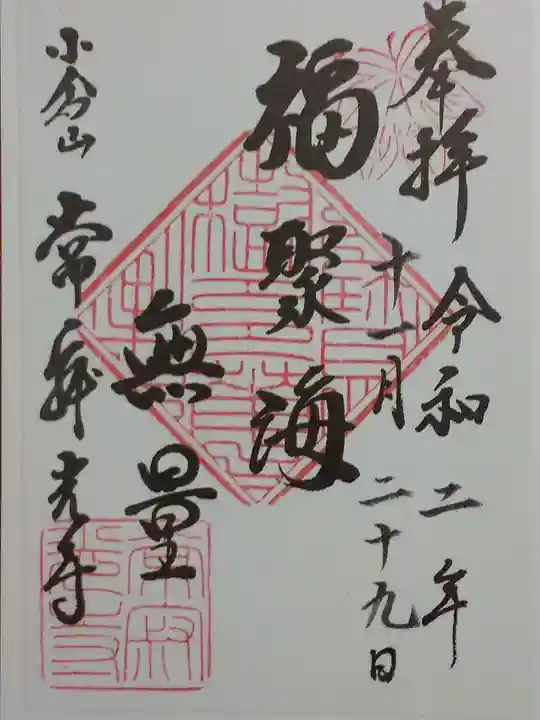 奉拝 令和二年
十一月二十九日
福聚海
無量
小倉山
常寂光寺